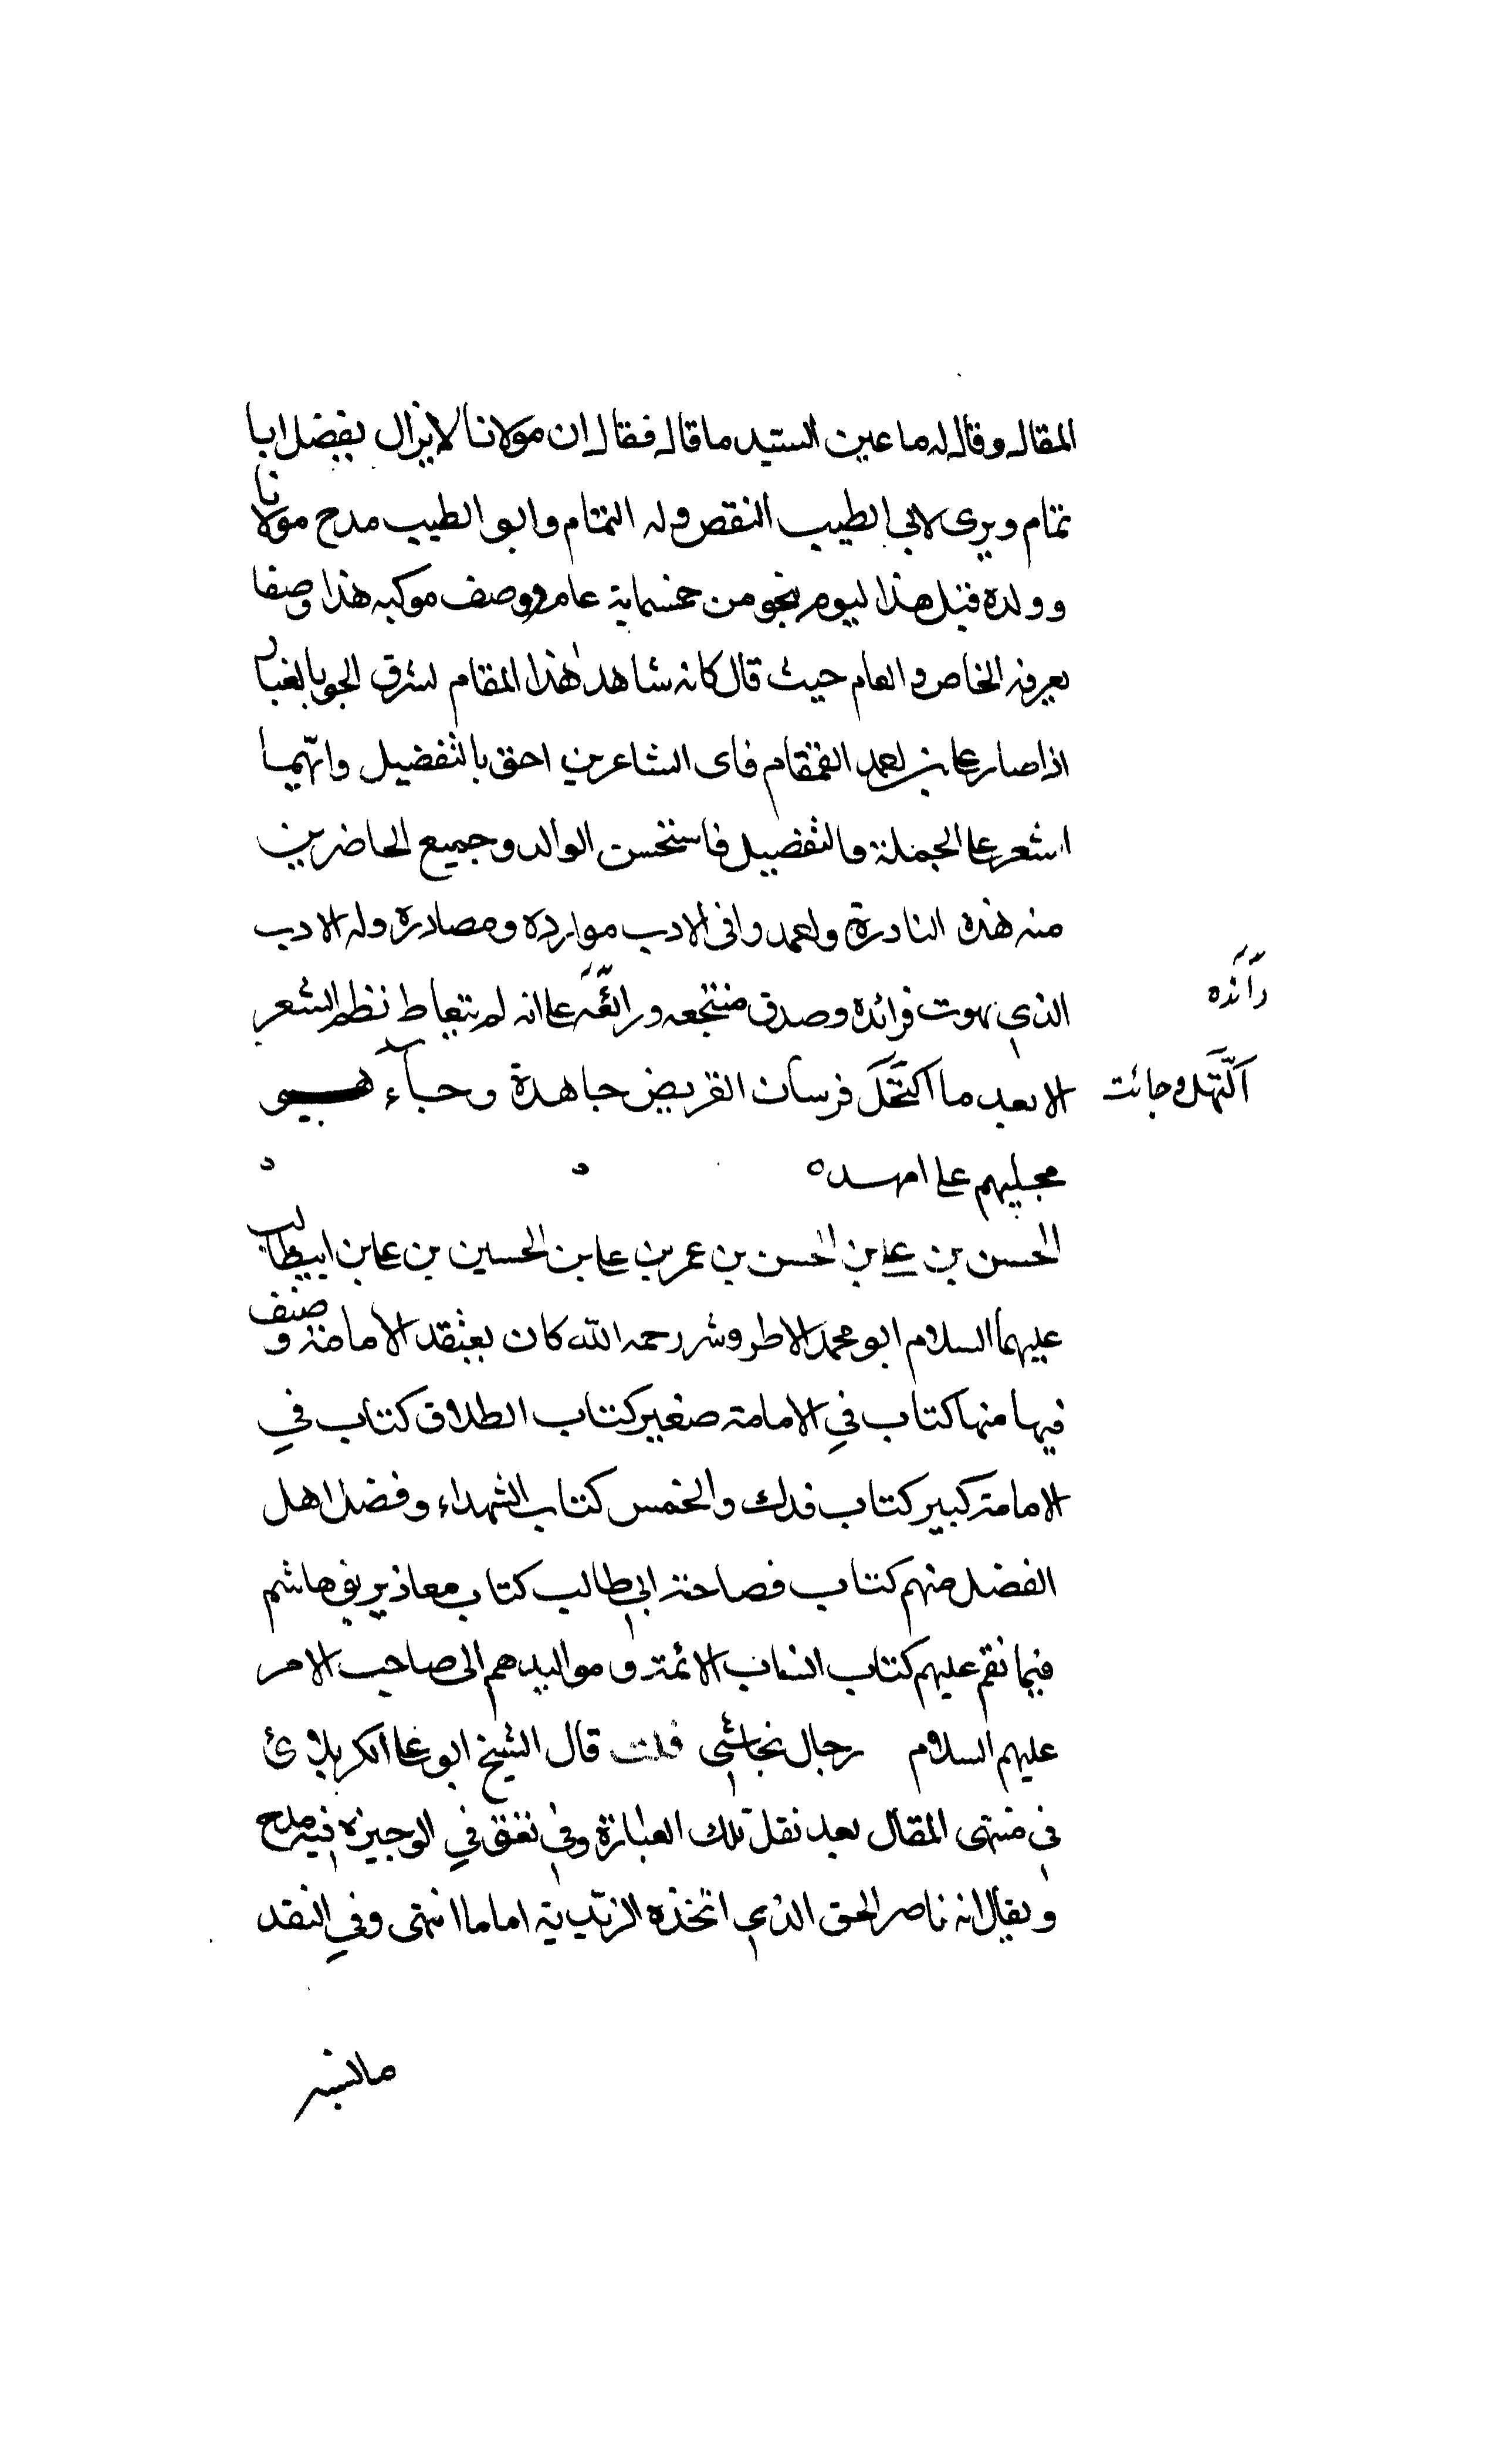 المقال وقال له ما عين السيد ما قال فقال ان مولانا لا يزال يفضل ابا
تمام ويرى لابي الطيب النقص وله التمام وابو الطيب مدح مولانا
وولده قبل هذا اليوم بنحو من خمسماية عام ووصف موكبه هذا وصفا
يعرفه الخاص والعام حيث قال كانه شاهد هذا المقام لشرق الجو بالغبار
اذا صار على بن القمقام فاى الشاعرين احق بالتفضيل وايهما
اشعر على الجملة والتفضيل فاستحسن الوالد وجميع الحاضرين
منه هذه النادرة ولعمر وافى الادب موارده ومصادره وله الادب
الذي بهرت فرائده وصدق منتجعه ورائعه على انه لم يتعاط نظم الشعر
رائده
الا بعد ما اكتحل فرسان القريض جاهدة وجاء
اكتهل وجائت
مجليهم على امده
الحسن بن على بن الحسن بن عمر بن على بن الحسين بن على بن ابيطالب
عليهما السلام ابو محمد الاطروش رحمه الله كان يعتقد الامامة وصنف
فيها منها كتاب في الامامة صغير كتاب الطلاق كتاب في
الامامة كبير كتاب فدك والخمس كتاب الشهداء وفضل اهل
الفضل منهم كتاب فصاحة ابى طالب كتاب معاذير بنى هاشم
فيما نقم عليهم كتاب انساب الائمة ومواليدهم الى صاحب الامر
عليهم السلام رجال نجاشى قلت قال الشيخ ابو على الكربلائ
فى منتهى المقال بعد نقل تلك العبارة وفى تعق في الوجيزه فيه مدح
ويقال انه ناصر الحق الذي اتخذه الزيدية اماما انتهى وفي النقد